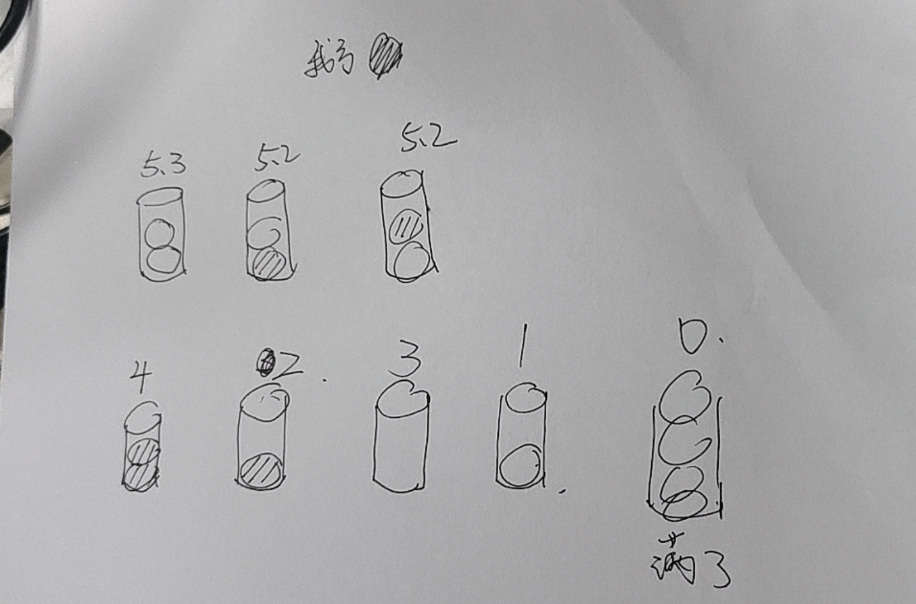 我方
5.3 5.2 5.2
4 2. 3 1. 0.
满了